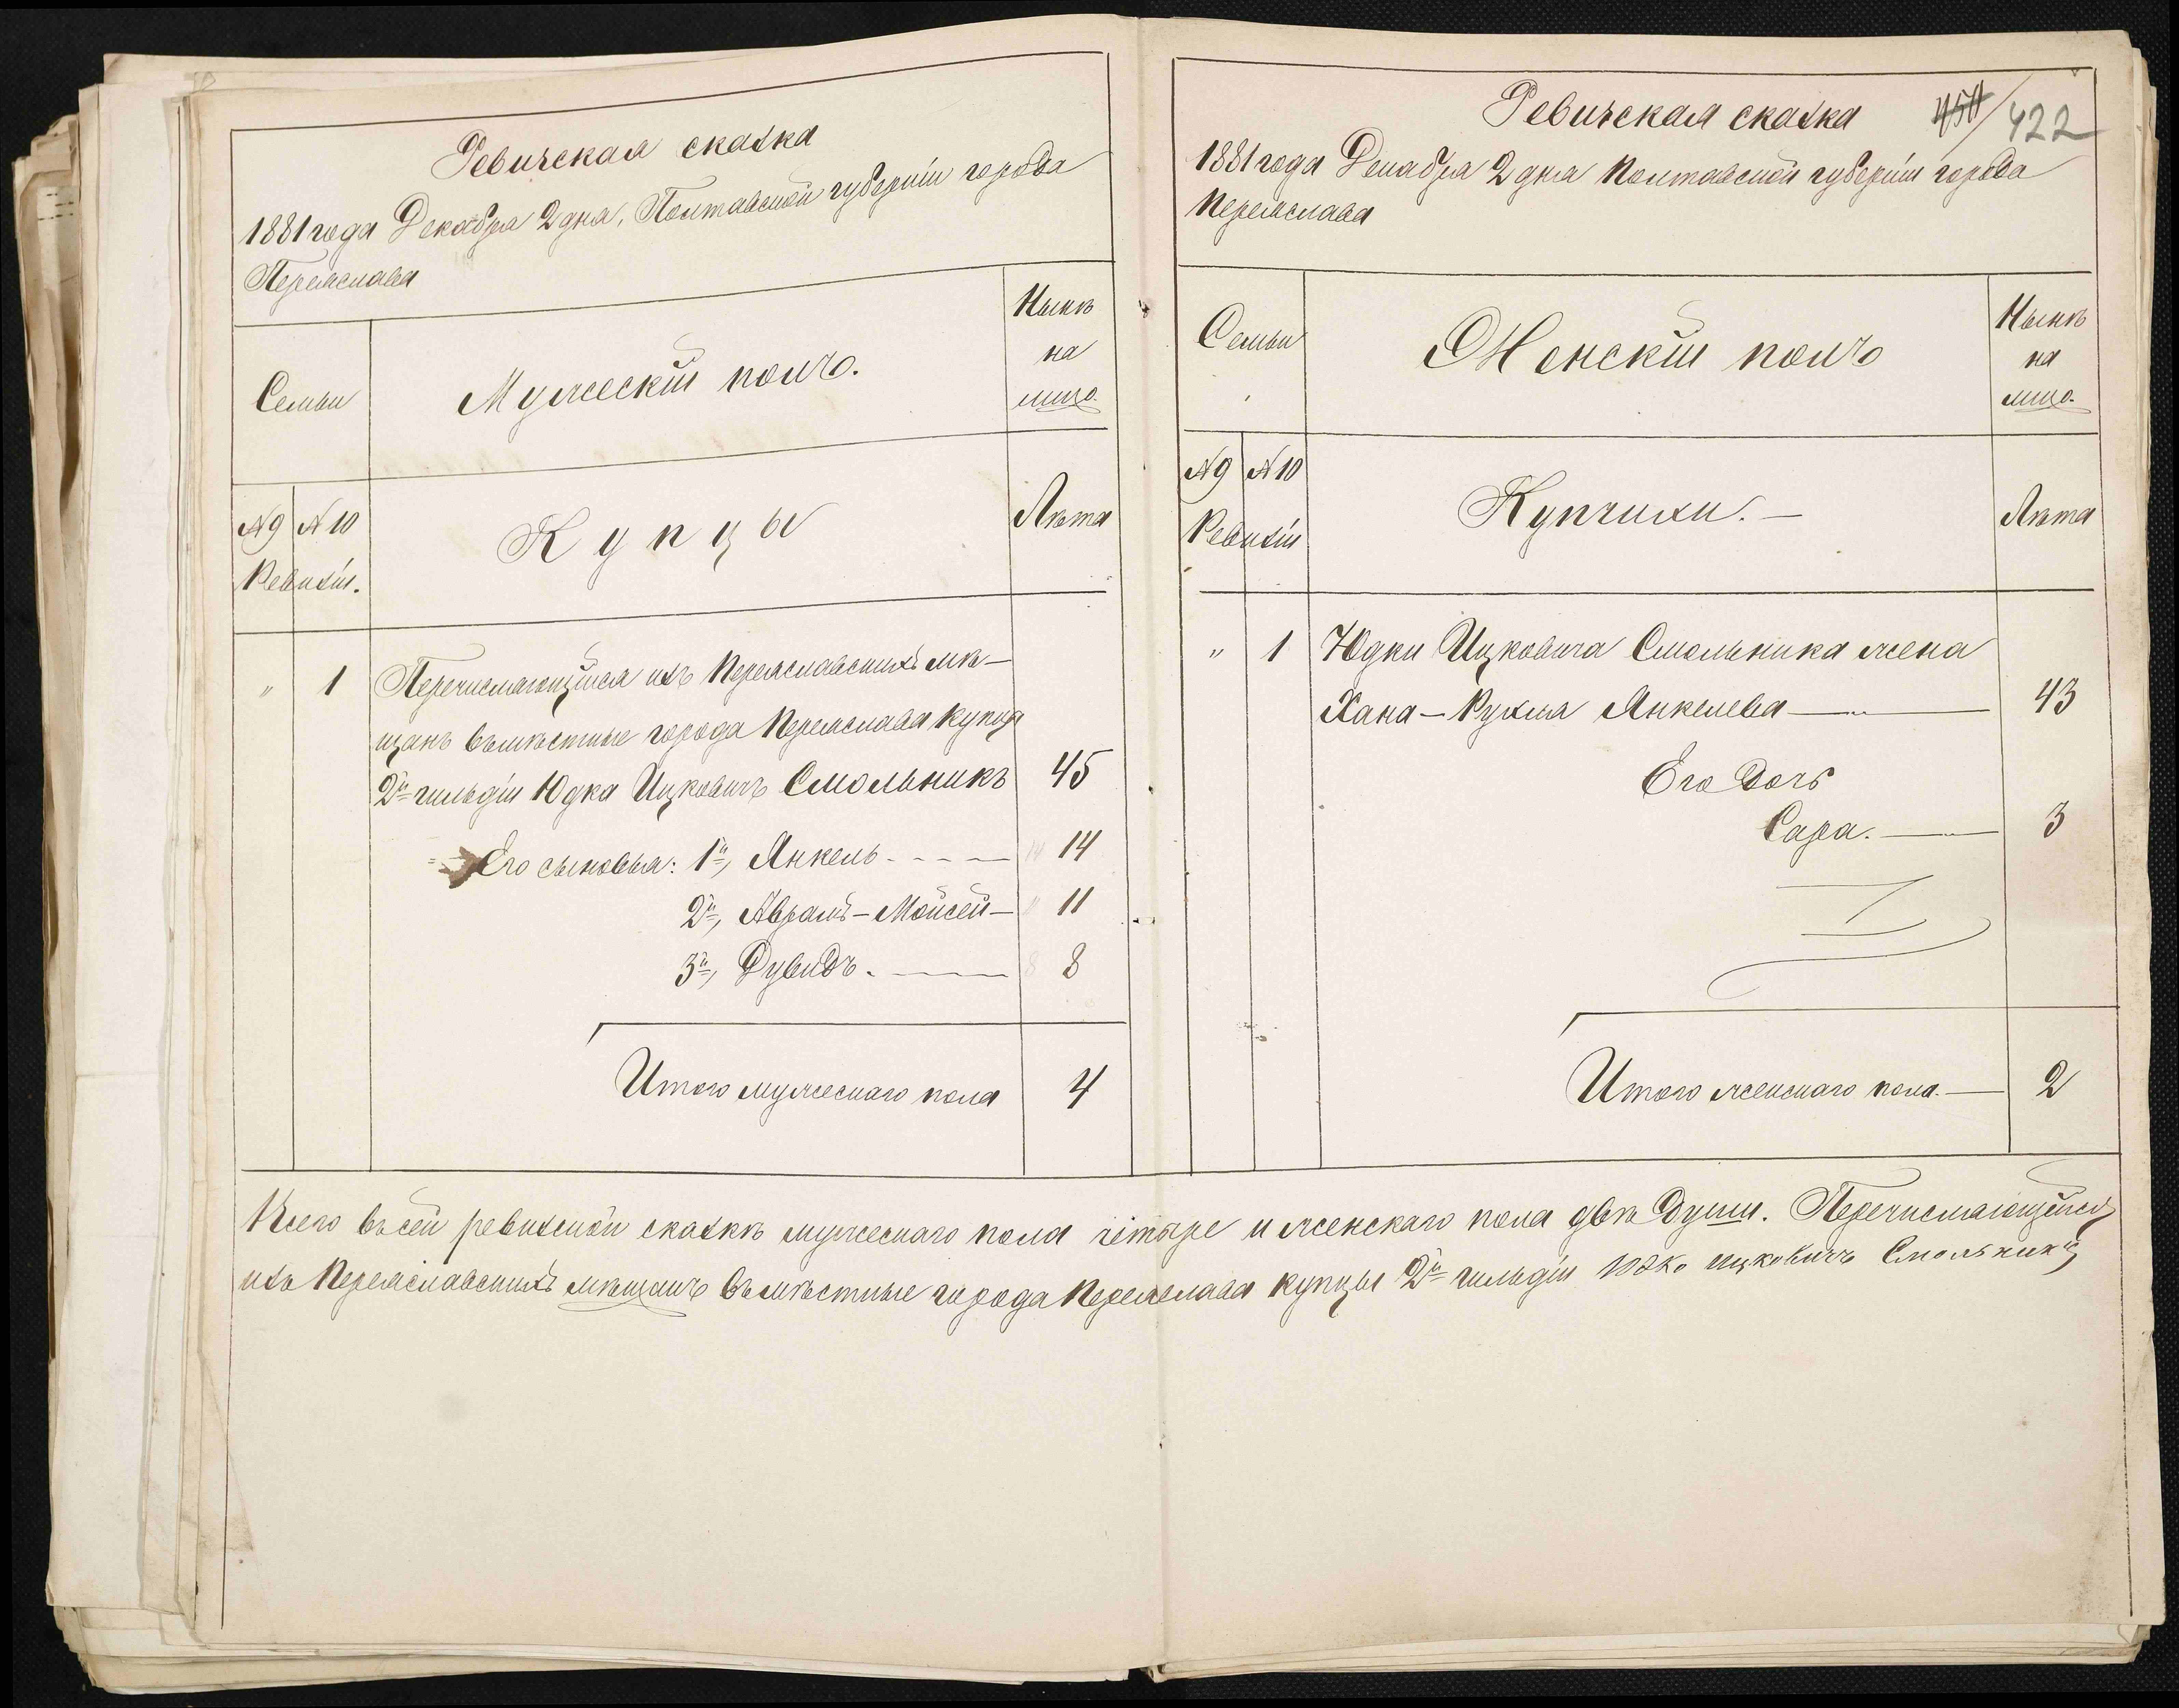 Ревизская сказка
1881 года Декабря 2 дня, Полтавской губерніи города
Переяслава
Семьи
Мужескій полъ.
Нынѣ
на
лицо
№ 9 № 10
Ревизіи.
Купцы
Лѣта
" 1 Перечисляющійся изъ Переяславскихъ мѣ-
щанъ въ мѣстные города Переяслава купцы
2й гильдіи Юдка Ицковичъ Смольникъ 45
Его сыновья: 1й, Янкель 14
2й, Аврамъ-Мойсей 11
3й, Дувидъ. 8
Итого мужескаго пола 4
Ревизская сказка 422
1881 года Декабря 2 дня Полтавской губерніи города
Переяслава
Семьи
Женскій полъ
Нынѣ
на
лицо.
№ 9 № 10
Ревизіи
Купчихи. —
Лѣта
" 1 Юдки Ицковича Смольника жена
Хана-Рухля Янкелева 43
Его дочь
Сара. 3
Итого женскаго пола. 2
Всего въ сей ревизской сказкѣ мужескаго пола четыре и женскаго пола двѣ души. Перечисляющійся
изъ Переяславскихъ мѣщанъ въ мѣстные города Переяслава купцы 2й гильдіи Юдко Ицковичъ Смольникъ